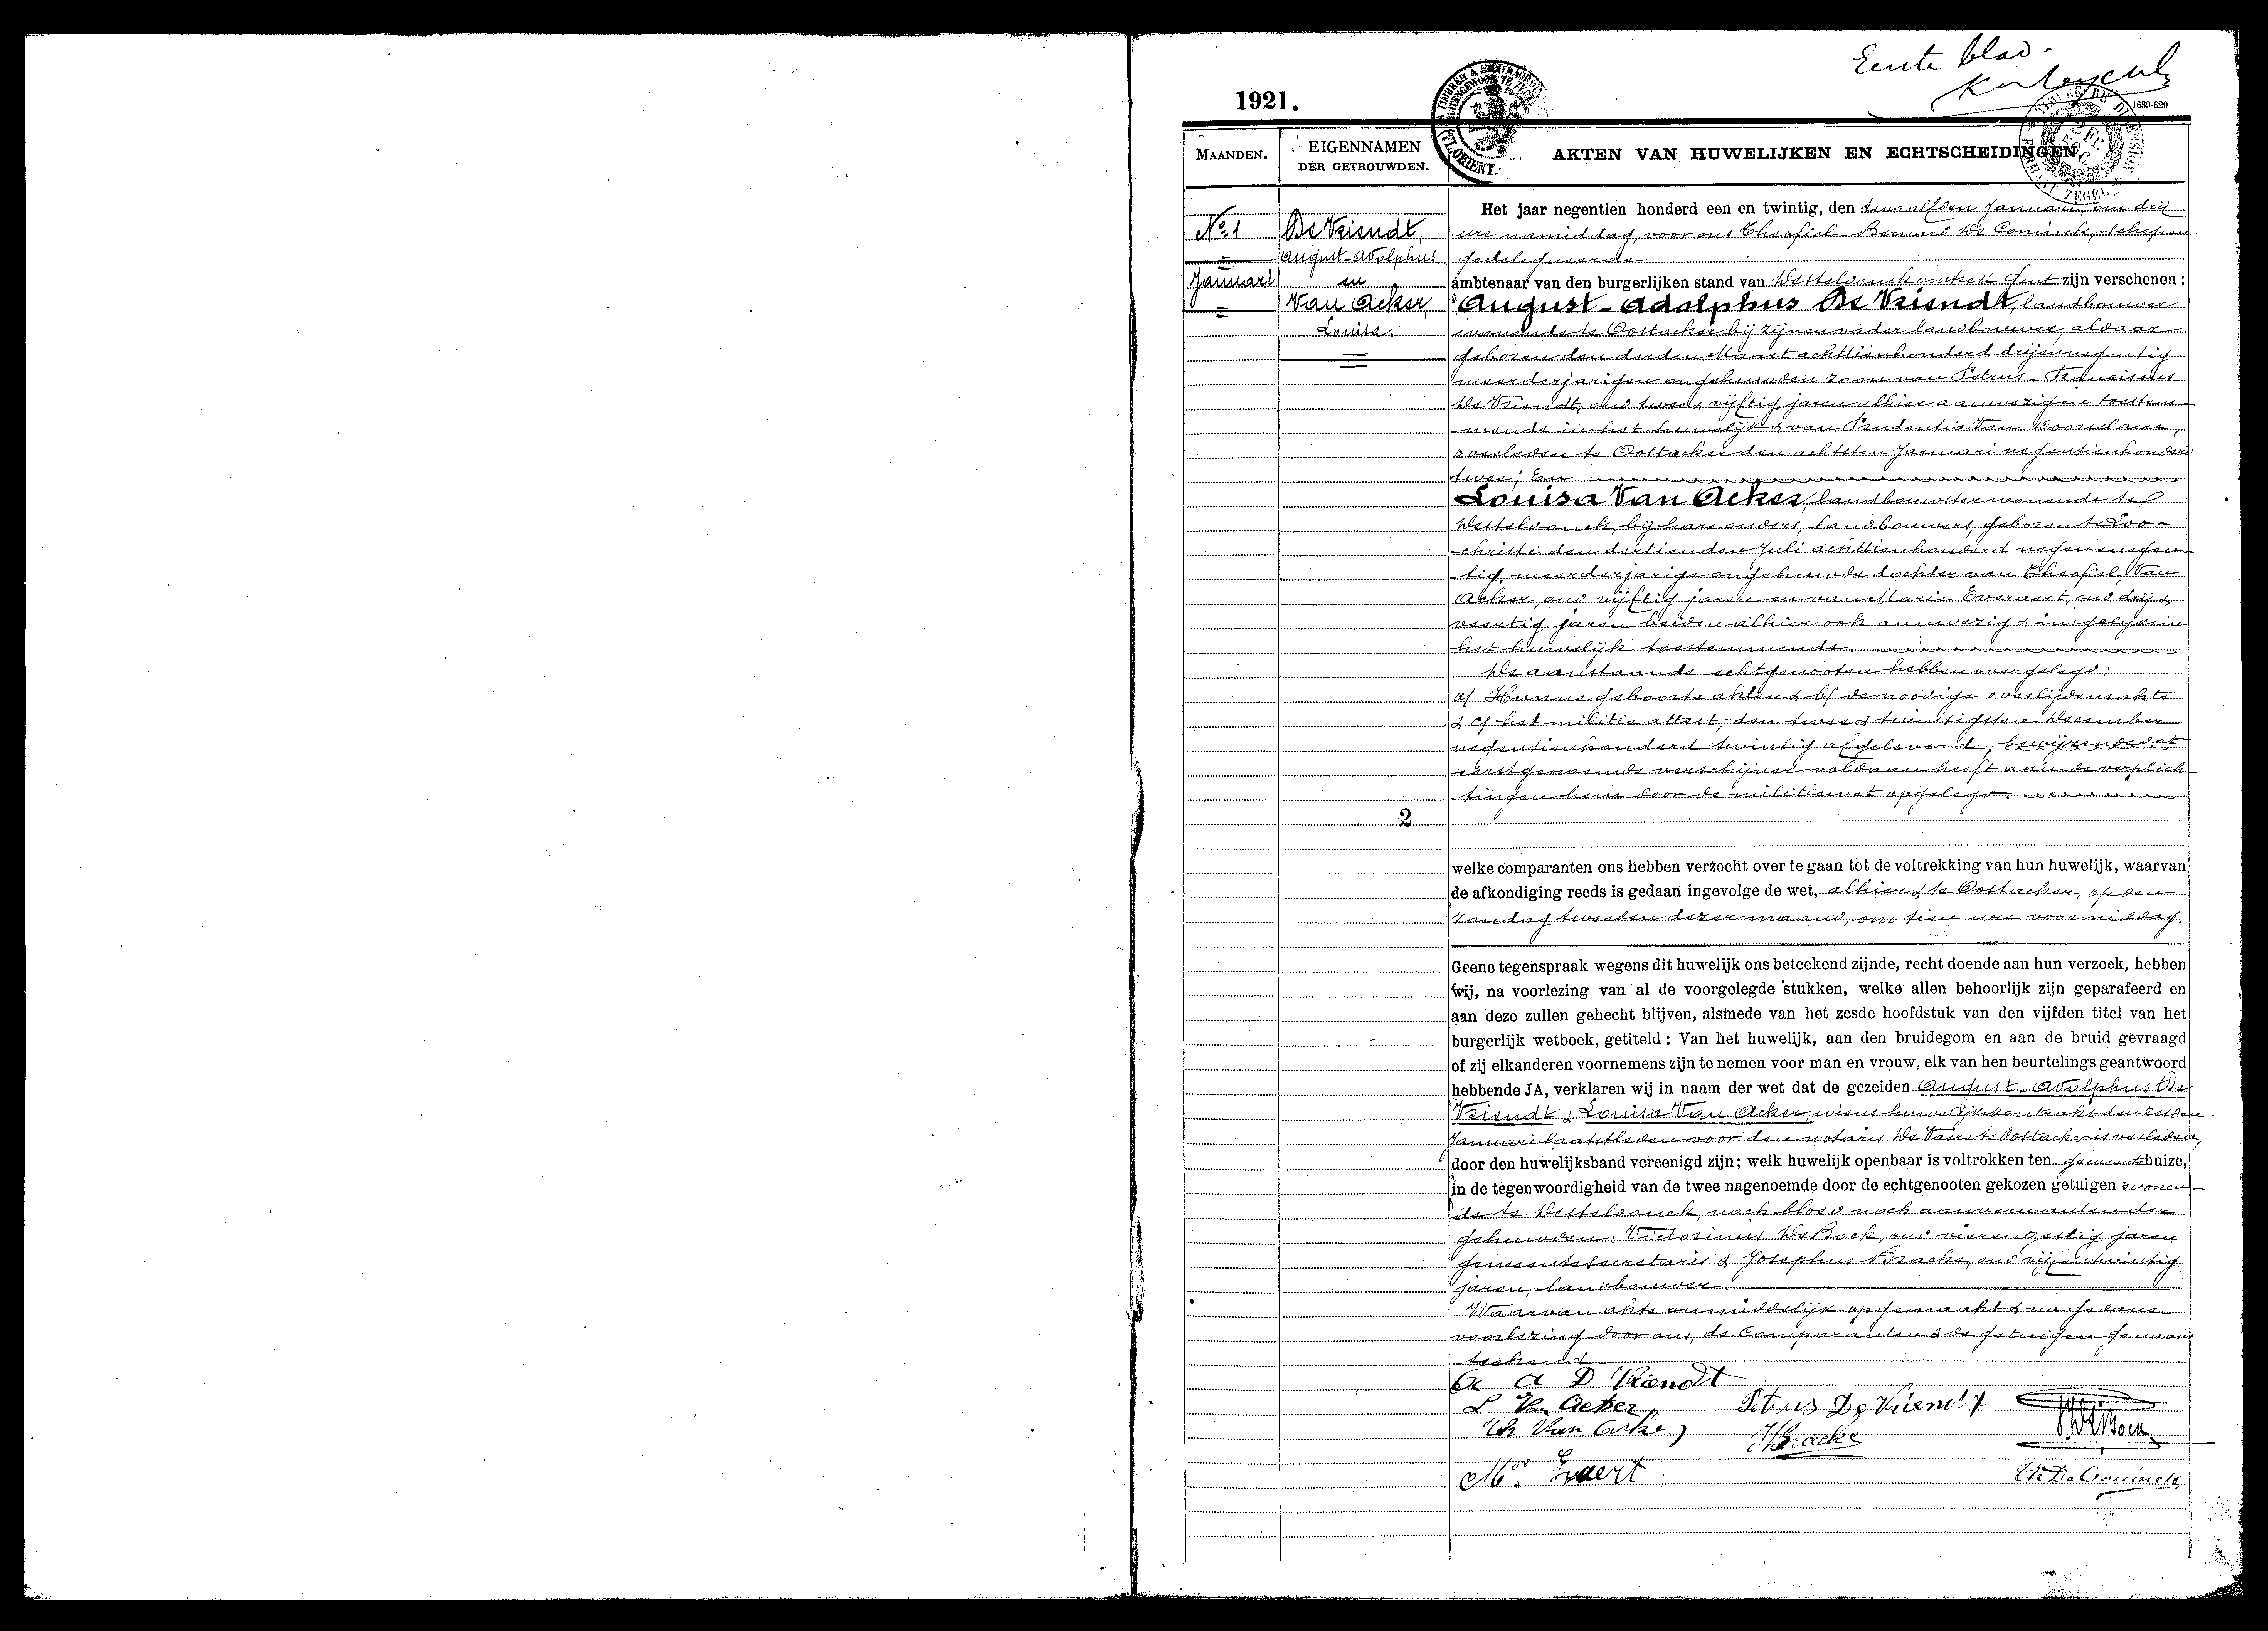 Eerste blad
1921.
1639-629
MAANDEN.
EIGENNAMEN
DER GETROUWDEN.
AKTEN VAN HUWELIJKEN EN ECHTSCHEIDINGEN
Nº 1
Januari
De Vriendt,
August-Adolphus
en
Van Acker,
Louisa.
Het jaar negentien honderd een en twintig, den twaalfden Januari, om drij
ure namiddag, voor ons Theofiel Bernard De Coninck, schepen
gedelegueerde
ambtenaar van den burgerlijken stand van Desteldonck arrondt Gent zijn verschenen :
August-Adolphus De Vriendt, landbouwer
wonende te Oostacker bij zijnen vader landbouwer, aldaar
geboren den derden Maart achttienhonderd drijennegentig
meerderjarigen ongehuwden zoon van Petrus-Franciscus
De Vriendt, oud twee & vijftig jaren alhier aanwezig en toestem-
mende in het huwelijk & van Prudentia Van Doorselaere,
overleden te Oostacker den achtsten Januari negentienhonderd
twee; En
Louisa Van Acker, landbouwster wonende te
Desteldonck, bij hare ouders, landbouwers, geboren te Loo-
christi den dertienden Juli achttienhonderd negenennegen-
tig, meerderjarige ongehuwde dochter van Theofiel Van
Acker, oud vijftig jaren en van Marie Everaert, oud drij &
veertig jaren beiden alhier ook aanwezig & insgelijks in
het huwelijk toestemmende.
De aanstaande echtgenooten hebben overgelegd:
a/ Hunne geboorte akten & b/ de noodige overlijdensakte
& c/ het militie attest, den twee & twintigsten December
negentienhonderd twintig afgeleverd, bewijzende dat
eerstgenoemde verschijner voldaan heeft aan de verplich-
tingen hem door de militiewet opgelegd.
2
welke comparanten ons hebben verzocht over te gaan tot de voltrekking van hun huwelijk, waarvan
de afkondiging reeds is gedaan ingevolge de wet, alhier & te Oostacker, op den
Zondag tweeden dezer maand, om tien ure voormiddag.
Geene tegenspraak wegens dit huwelijk ons beteekend zijnde, recht doende aan hun verzoek, hebben
wij, na voorlezing van al de voorgelegde stukken, welke allen behoorlijk zijn geparafeerd en
aan deze zullen gehecht blijven, alsmede van het zesde hoofdstuk van den vijfden titel van het
burgerlijk wetboek, getiteld : Van het huwelijk, aan den bruidegom en aan de bruid gevraagd
of zij elkanderen voornemens zijn te nemen voor man en vrouw, elk van hen beurtelings geantwoord
hebbende JA, verklaren wij in naam der wet dat de gezeiden August-Adolphus De
Vriendt & Louisa Van Acker, wiens huwelijkskontrakt den zesden
Januari laatstleden voor den notaris De Vaere te Oostacker is verleden,
door den huwelijksband vereenigd zijn; welk huwelijk openbaar is voltrokken ten gemeentehuize,
in de tegenwoordigheid van de twee nagenoemde door de echtgenooten gekozen getuigen wonen-
de te Desteldonck, noch bloed noch aanverwanten der
gehuwden: Victorinus De Bock, oud vierenzestig jaren
gemeentesecretaris & Josephus Bracke, oud vijfentwintig
jaren, landbouwer.
Waarvan akte onmiddelijk opgemaakt & na gedane
voorlezing door ons, de Comparanten & de getuigen genaam
teekend
A D Vriendt
L Van Acker
Petrus De Vriendt
Th Van Acker
J Bracke
De Bock
Mie Evaert
Th De Coninck